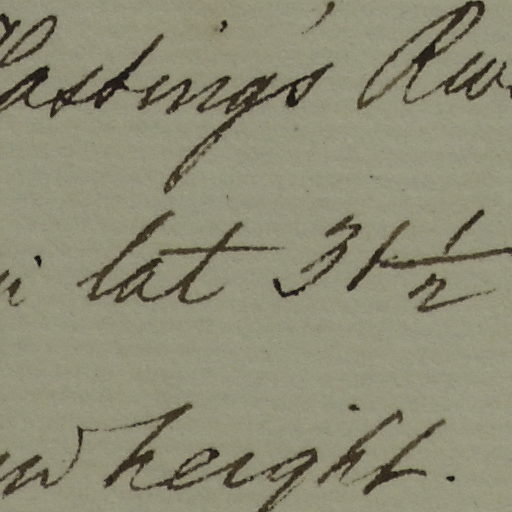 Hastings Riv
in lat 31 1/2
height.